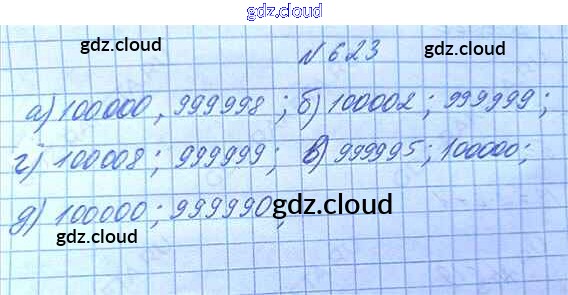 gdz.cloud
gdz.cloud
gdz.cloud
N 623
а) 100000, 999998; б) 100002; 999999;
г) 100008; 999999; в) 999995; 100000;
д) 100000; 999990;
gdz.cloud
gdz.cloud